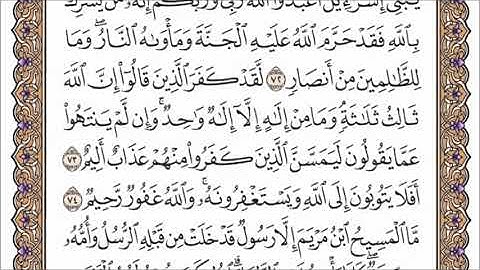 يَٰبَنِىٓ إِسْرَٰٓءِيلَ ٱعْبُدُوا۟ ٱللَّهَ رَبِّى وَرَبَّكُمْ إِنَّهُۥ مَن يُشْرِكْ
بِٱللَّهِ فَقَدْ حَرَّمَ ٱللَّهُ عَلَيْهِ ٱلْجَنَّةَ وَمَأْوَىٰهُ ٱلنَّارُ ۖ وَمَا
لِلظَّٰلِمِينَ مِنْ أَنصَارٍ ٧٢ لَّقَدْ كَفَرَ ٱلَّذِينَ قَالُوٓا۟ إِنَّ ٱللَّهَ
ثَالِثُ ثَلَٰثَةٍ ۘ وَمَا مِنْ إِلَٰهٍ إِلَّآ إِلَٰهٌ وَٰحِدٌ ۚ وَإِن لَّمْ يَنتَهُوا۟
عَمَّا يَقُولُونَ لَيَمَسَّنَّ ٱلَّذِينَ كَفَرُوا۟ مِنْهُمْ عَذَابٌ أَلِيمٌ ٧٣
أَفَلَا يَتُوبُونَ إِلَى ٱللَّهِ وَيَسْتَغْفِرُونَهُۥ ۚ وَٱللَّهُ غَفُورٌ رَّحِيمٌ ٧٤
مَّا ٱلْمَسِيحُ ٱبْنُ مَرْيَمَ إِلَّا رَسُولٌ قَدْ خَلَتْ مِن قَبْلِهِ ٱلرُّسُلُ وَأُمُّهُۥ